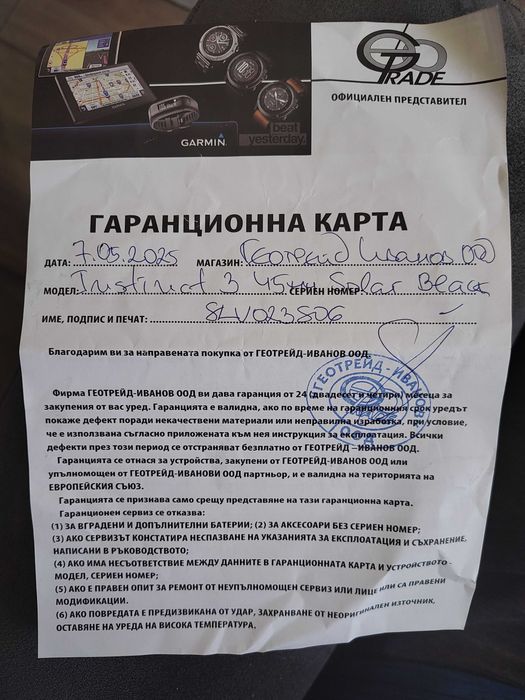 GEO
TRADE
ОФИЦИАЛЕН ПРЕДСТАВИТЕЛ
GARMIN
beat
yesterday.
ГАРАНЦИОННА КАРТА
ДАТА: 7.05.2025 МАГАЗИН: Геотрейд Иванов ООД
МОДЕЛ: Instinct 3 45mm Solar Black СЕРИЕН НОМЕР:
ИМЕ, ПОДПИС И ПЕЧАТ: 8LV023506
Благодарим ви за направената покупка от ГЕОТРЕЙД-ИВАНОВ ООД.
ГЕОТРЕЙД - ИВАНОВ
ООД
Фирма ГЕОТРЕЙД-ИВАНОВ ООД ви дава гаранция от 24 (двадесет и четири) месеца за
закупения от вас уред. Гаранцията е валидна, ако по време на гаранционния срок уредът
покаже дефект поради некачествени материали или неправилна изработка, при условие,
че е използвана съгласно приложената към нея инструкция за експлоатация. Всички
дефекти през този период се отстраняват безплатно от ГЕОТРЕЙД – ИВАНОВ ООД.
Гаранцията се отнася за устройства, закупени от ГЕОТРЕЙД-ИВАНОВ ООД или
упълномощен от ГЕОТРЕЙД-ИВАНОВИ ООД партньор, и е валидна на територията на
ЕВРОПЕЙСКИЯ СЪЮЗ.
Гаранцията се признава само срещу представяне на тази гаранционна карта.
Гаранционен сервиз се отказва:
(1) ЗА ВГРАДЕНИ И ДОПЪЛНИТЕЛНИ БАТЕРИИ; (2) ЗА АКСЕСОАРИ БЕЗ СЕРИЕН НОМЕР;
(3) АКО СЕРВИЗЪТ КОНСТАТИРА НЕСПАЗВАНЕ НА УКАЗАНИЯТА ЗА ЕКСПЛОАТАЦИЯ И СЪХРАНЕНИЕ,
НАПИСАНИ В РЪКОВОДСТВОТО;
(4) АКО ИМА НЕСЪОТВЕТСТВИЕ МЕЖДУ ДАННИТЕ В ГАРАНЦИОННАТА КАРТА И УСТРОЙСТВОТО -
МОДЕЛ, СЕРИЕН НОМЕР;
(5) АКО Е ПРАВЕН ОПИТ ЗА РЕМОНТ ОТ НЕУПЪЛНОМОЩЕН СЕРВИЗ ИЛИ ЛИЦЕ ИЛИ СА ПРАВЕНИ
МОДИФИКАЦИИ.
(6) АКО ПОВРЕДАТА Е ПРЕДИЗВИКАНА ОТ УДАР, ЗАХРАНВАНЕ ОТ НЕОРИГИНАЛЕН ИЗТОЧНИК,
ОСТАВЯНЕ НА УРЕДА НА ВИСОКА ТЕМПЕРАТУРА.